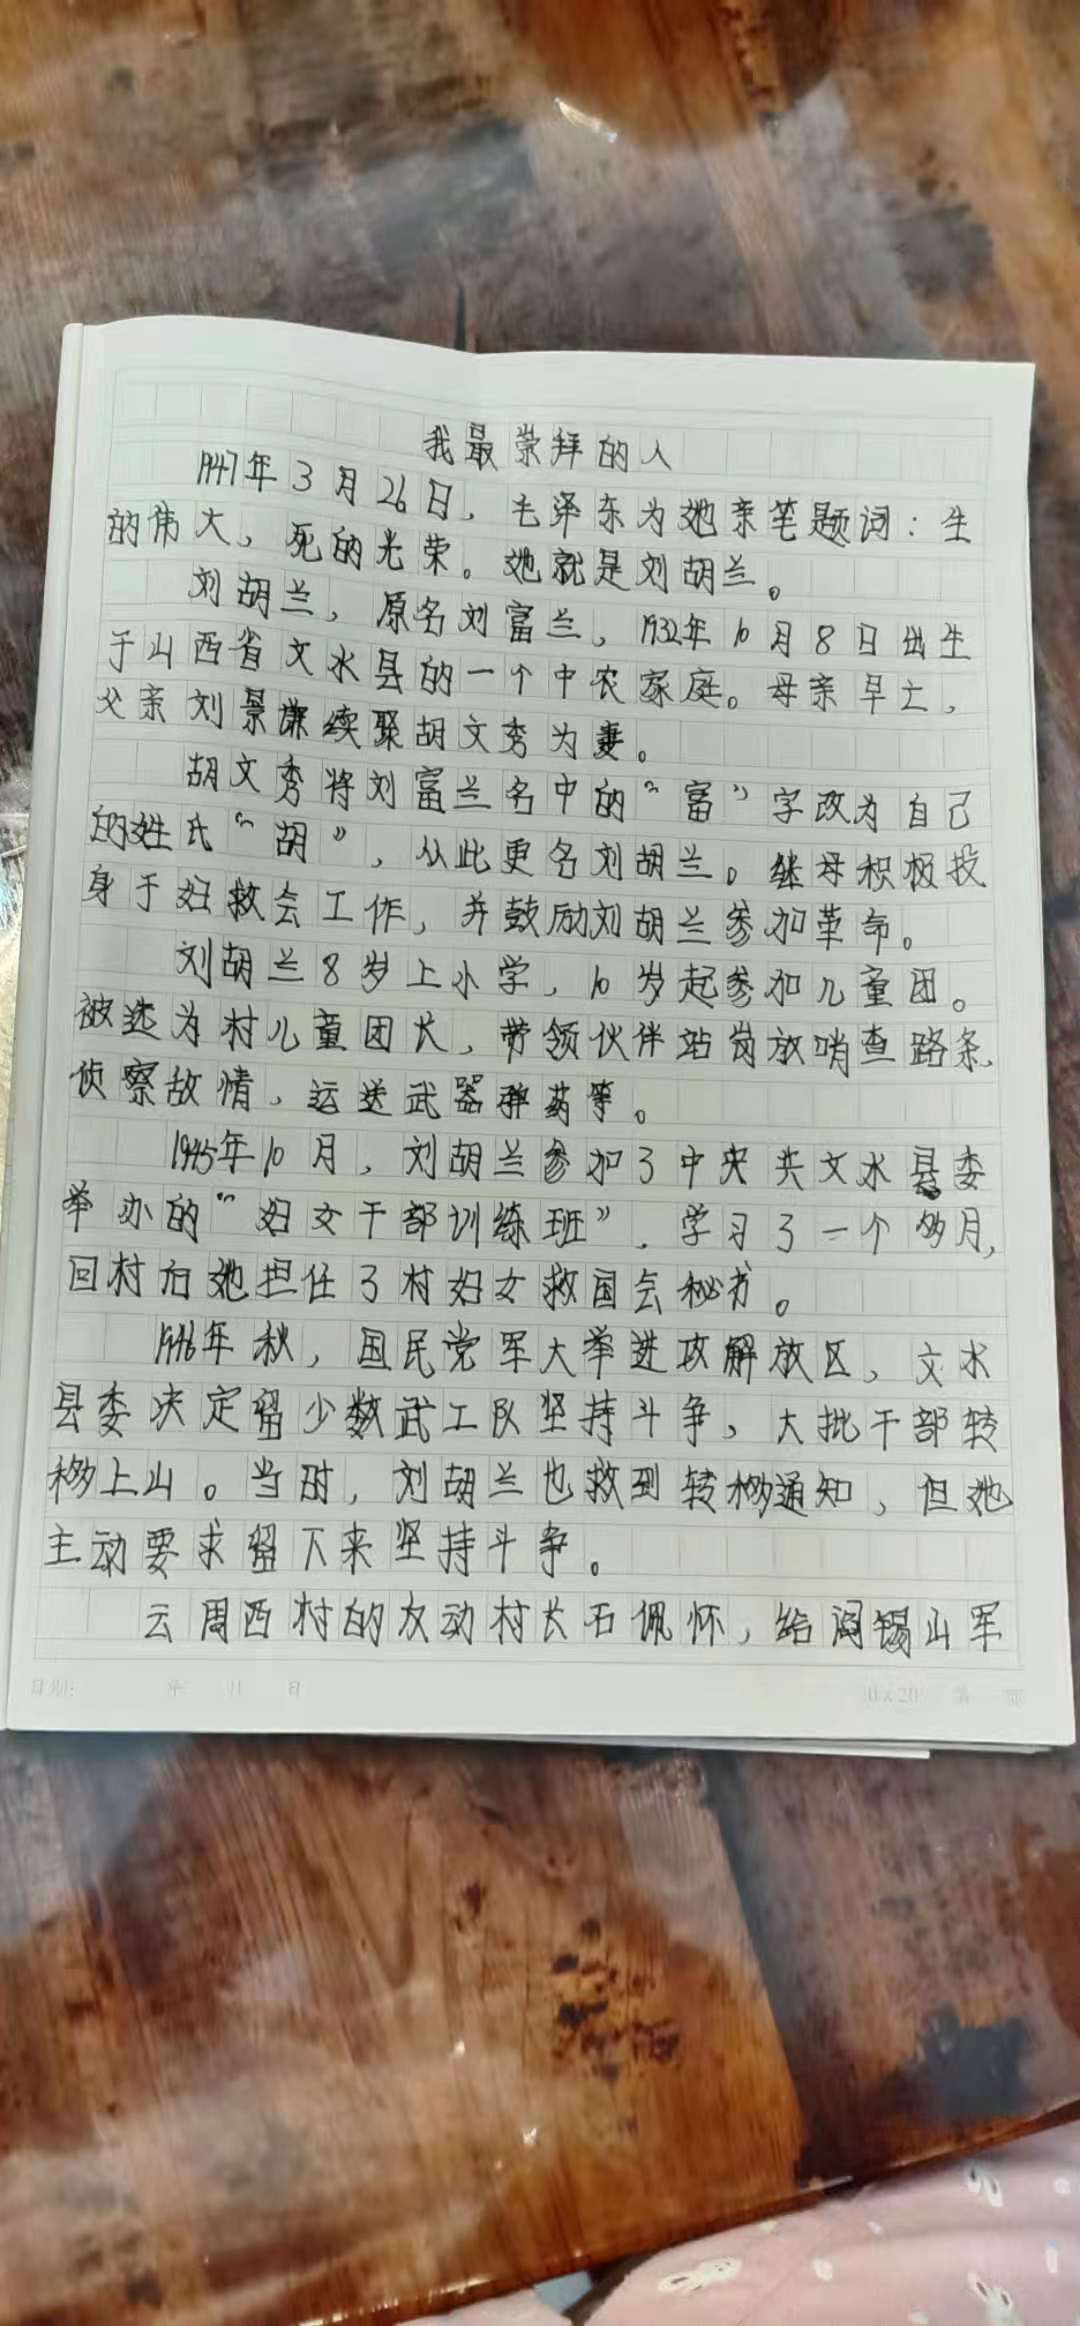 我最崇拜的人
1947年3月26日，毛泽东为她亲笔题词：生
的伟大，死的光荣。她就是刘胡兰。
刘胡兰，原名刘富兰，1932年10月8日出生
于山西省文水县的一个中农家庭。母亲早亡，
父亲刘景谦续聚胡文秀为妻。
胡文秀将刘富兰名中的“富”字改为自己
的姓氏“胡”，从此更名刘胡兰。继母积极投
身于妇救会工作，并鼓励刘胡兰参加革命。
刘胡兰8岁上小学，10岁起参加儿童团。
被选为村儿童团长，带领伙伴站岗放哨查路条，
侦察敌情，运送武器弹药等。
1945年10月，刘胡兰参加了中央共文水县委
举办的“妇女干部训练班”，学习了一个多月，
回村后她担任了村妇女救国会秘书。
1946年秋，国民党军大举进攻解放区，文水
县委决定留少数武工队坚持斗争，大批干部转
移上山。当时，刘胡兰也救到转移通知，但她
主动要求留下来坚持斗争。
云周西村的反动村长石佩怀，给阎锡山军
日期： 年 月 日 10x20 第 页